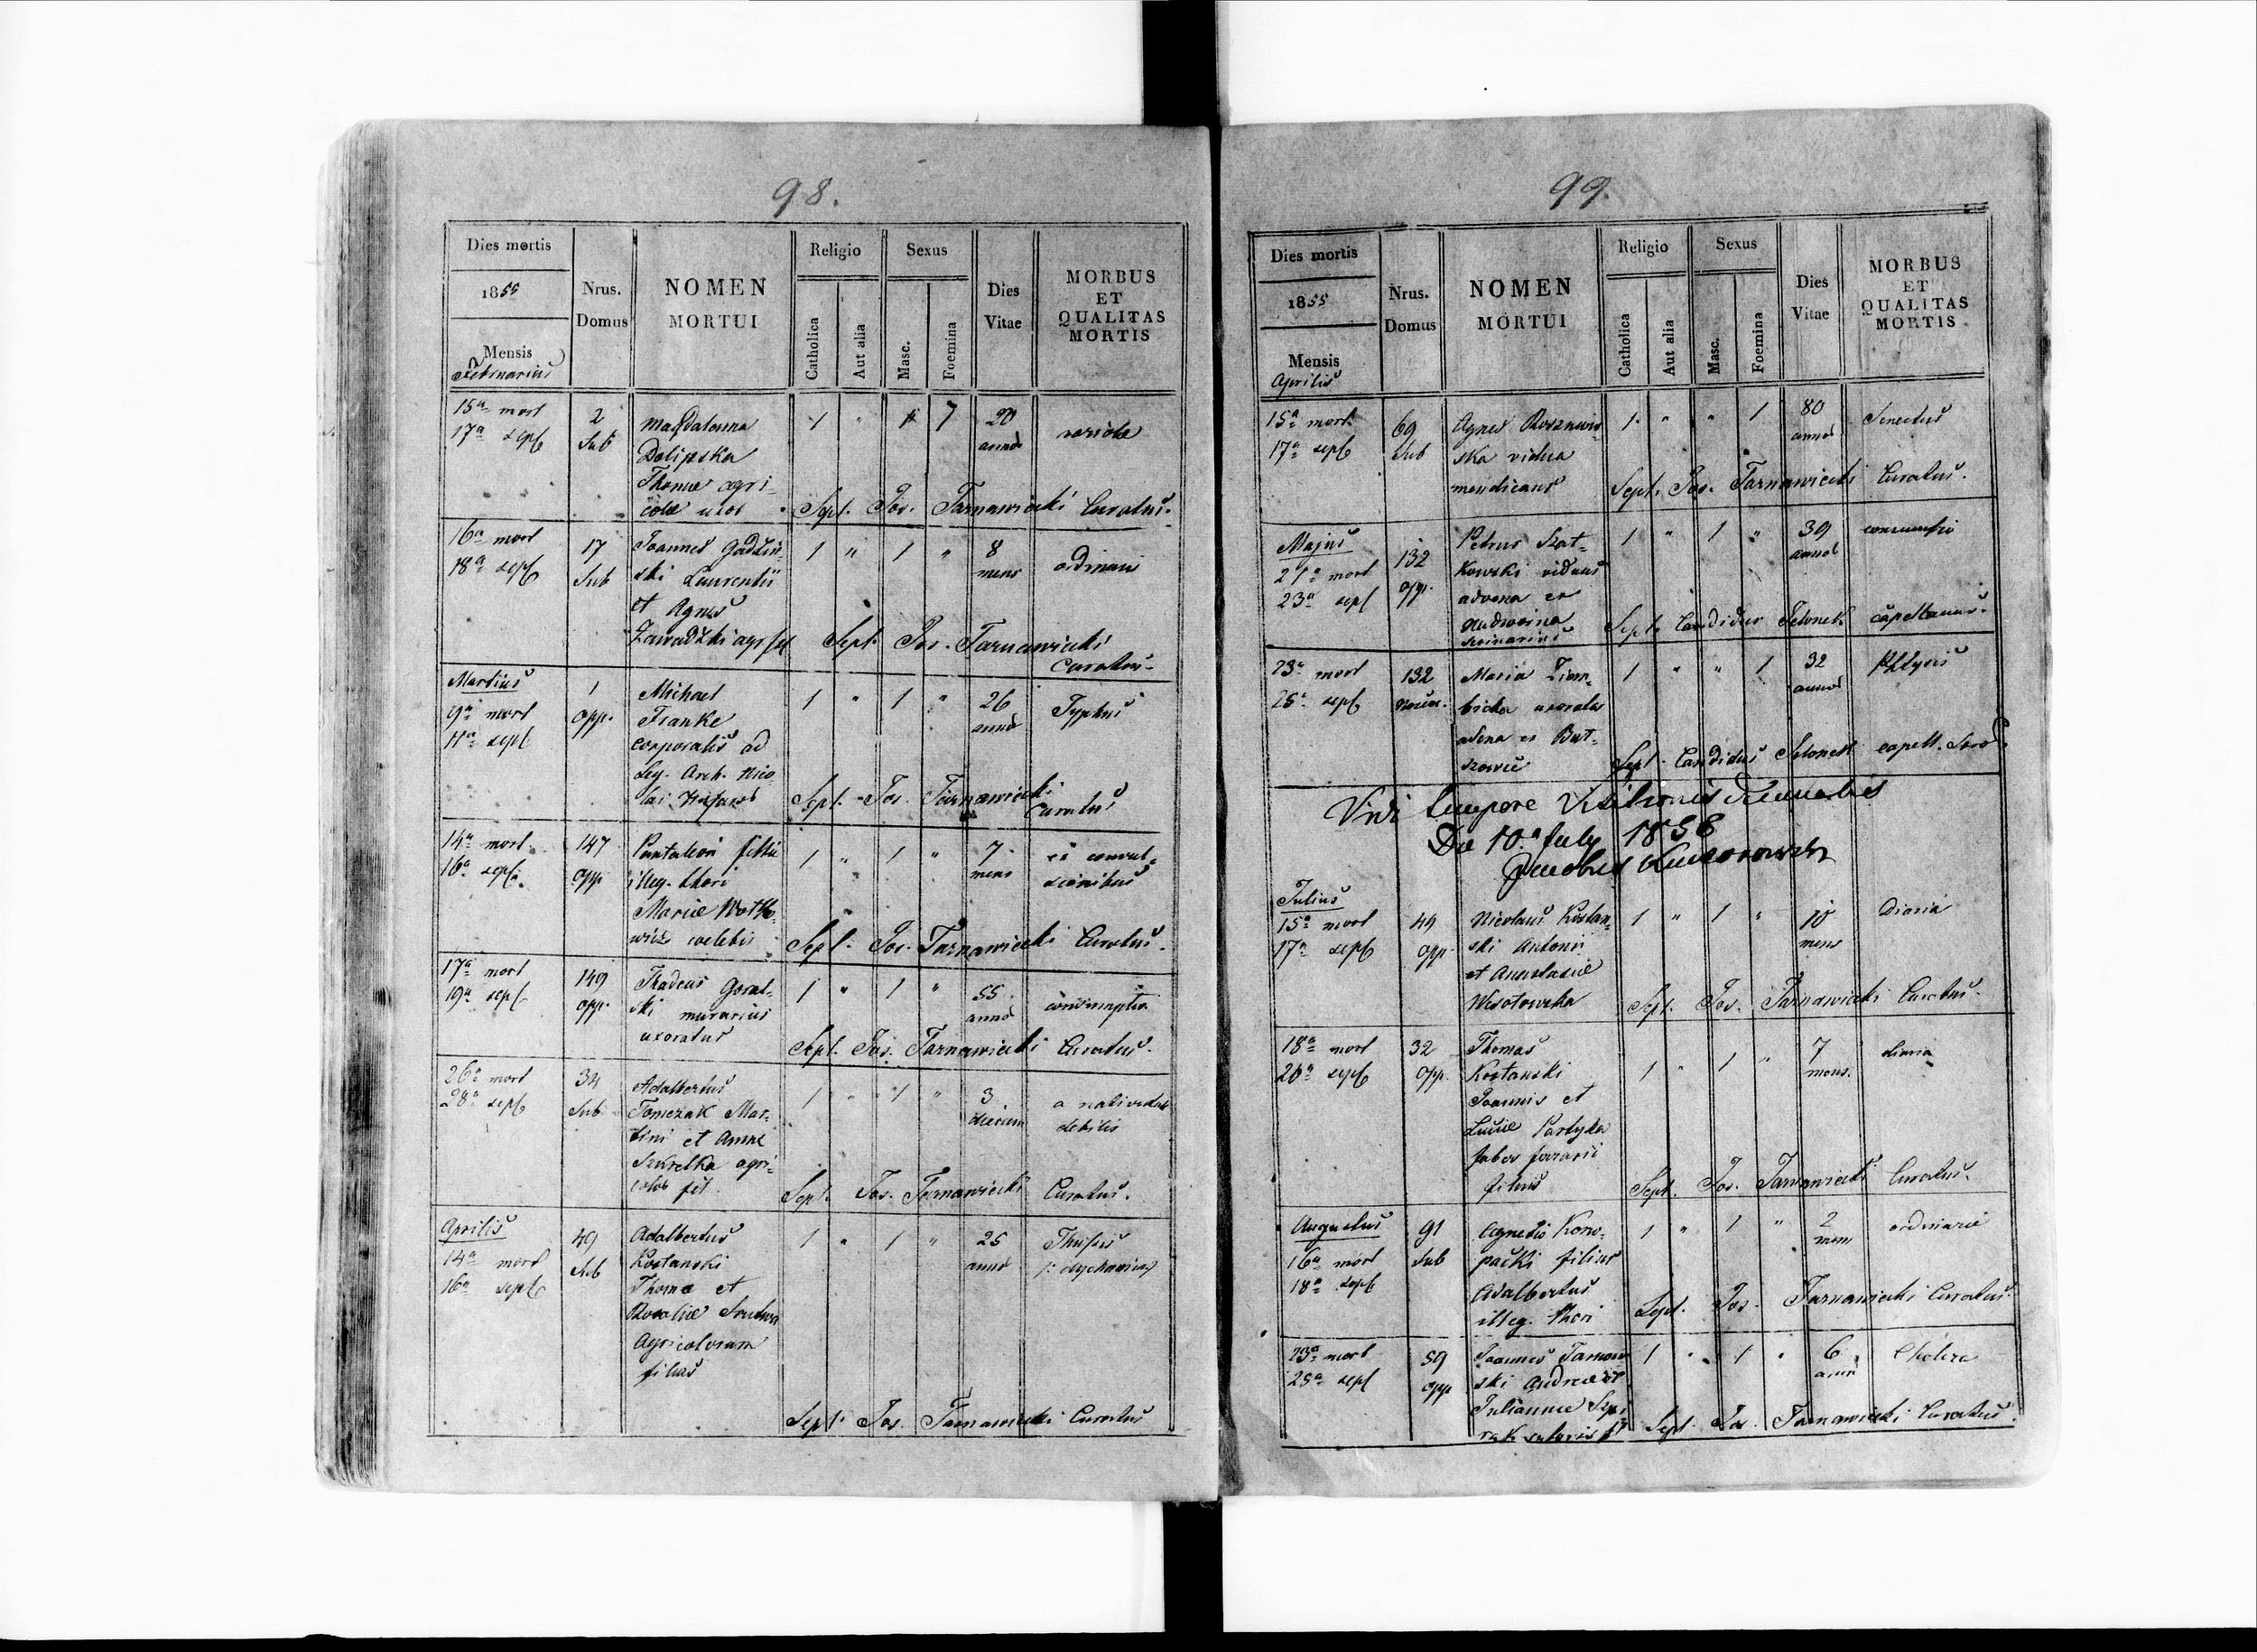 98.
Dies mortis
1855
Mensis
Februarius
Nrus.
Domus
NOMEN
MORTUI
Religio
Catholica
Aut alia
Sexus
Masc.
Foemina
Dies
Vitae
MORBUS
ET
QUALITAS
MORTIS
15a mort
17a sept
2
Sub
Magdalenna
Dolipska
Thomae agri-
colae uxor
1 " 1
20
annor
variola
Sept. Jos. Tarnawiecki Curatus.
16a mort
18a sept
17
Sub
Joannes Gadziń
ski Laurentii
et Agnes
Zawadzki agr fil
1 " 1 "
8
mens
ordinaris
Sept. Jos. Tarnawiecki
Curatus.
Martius
9a mort
11a sept
1
opp.
Michael
Franke
corporalis ad
Leg. Arch. Nico
lai
1 " 1 "
26
annor
Typhus
Sept. Jos. Tarnawiecki
Curatus
14a mort.
16a sept.
147
opp
Pantaleon filius
illeg. thori
Mariae Wotko-
wicz coelebis
1 " 1 "
7
mens
ex convul-
sionibus
Sept. Jos. Tarnawiecki Curatus.
17a mort
19a sept
149
opp.
Thadeus Goral-
ski murarius
uxoratus
1 " 1 "
55
annor
consumptio
Sept. Jos. Tarnawiecki Curatus.
26a mort
28a sept
34
Sub
Adalbertus
Tomczak Mar-
tini et Annae
Szkrelka agri-
colar fil.
1 " 1 "
3
dierum
a nativitate
debilis
Sept. Jos. Tarnawiecki Curatus.
Aprilis
14a mort
16a sept
49
Sub
Adalbertus
Kostanski
Thoma et
Rosaliae
Agricolorum
filius
1 " 1 "
25
annor
(: dychawica)
Sept. Jos. Tarnawiecki Curatus
99.
Dies mortis
1855
Mensis
Aprilis
Nrus.
Domus
NOMEN
MORTUI
Religio
Catholica
Aut alia
Sexus
Masc.
Foemina
Dies
Vitae
MORBUS
ET
QUALITAS
MORTIS
15a mort.
17a sept
69
Sub
Agnes Rosznow-
ska vidua
mendicans
1 " " 1
80
annor
Senectus
Sept. Jos. Tarnawiecki Curatus.
Majus
21a mort
23a sept
132
opp.
Petrus Szat-
kowski viduus
advena ex
1 " 1 "
39
annor
consumtio
Sept. Candidus Selonek capellanus.
23a mort
25a sept
132
Maria Ziem-
bicka uxorata
adena ex But-
szowie
1 " " 1
32
annor
Phtysis
Sept. Candidus Selonek capell.
Vidi tempore Visitionis Decanalis
Die 10a July 1856
Julius
15a mort
17a sept
49
opp
Nicolaus Kostan-
ski Antonii
et Anastasiae
Wesołowska
1 " 1 "
10
mens
Diaria
Sept. Jos. Tarnawiecki Curatus.
18a mort
20a sept
32
opp.
Thomas
Kostanski
Joannis et
Luciae Partyka
faber ferrarii
filius
1 " 1 "
7
mens.
diaria
Sept. Jos. Tarnawiecki Curatus.
Augustus
16a mort
18a sept
91
Sub
Agnetis Kono-
packi filius
Adalbertus
illeg. thori
1 " 1 "
2
mens
ordinarie
Sept. Jos. Tarnawiecki Curatus
23a mort
25a sept
59
opp
Joannes Tarnow-
ski Andreae et
Juliannae Szp-
rak sutoris fil
1 " 1 "
6
anno
Cholera
Sept. Jos. Tarnawiecki Curatus.